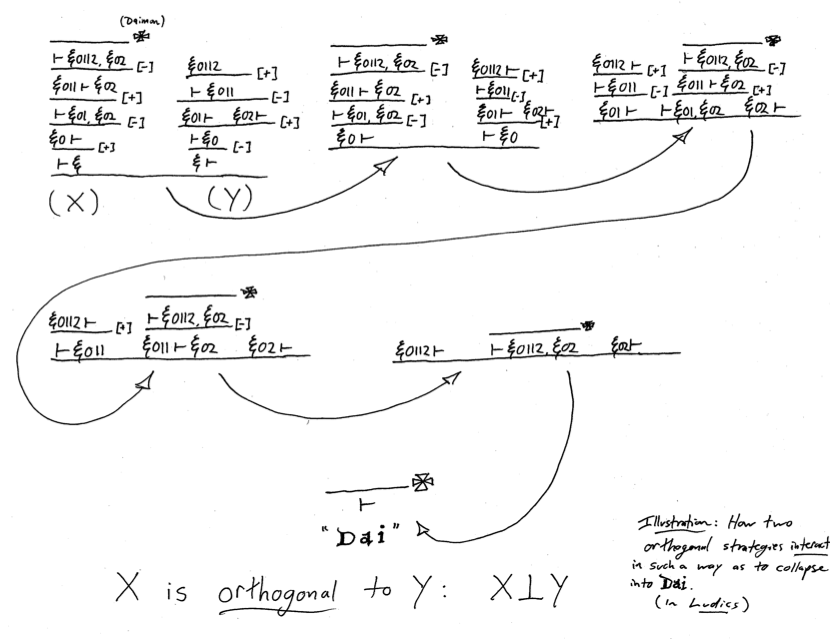 (Daimon)
✠
⊢ ξ0112, ξ02 [-]
ξ011 ⊢ ξ02 [+]
⊢ ξ01, ξ02 [-]
ξ0 ⊢ [+]
⊢ ξ
(X)
ξ0112 [+]
⊢ ξ011 [-]
ξ01 ⊢ ξ02 ⊢ [+]
⊢ ξ0 [-]
ξ ⊢
(Y)
✠
⊢ ξ0112, ξ02 [-]
ξ011 ⊢ ξ02 [+]
⊢ ξ01, ξ02 [-]
ξ0 ⊢
ξ0112 ⊢ [+]
⊢ ξ011 [-]
ξ01 ⊢ ξ02 ⊢ [+]
⊢ ξ0
✠
ξ0112 ⊢ [+] ⊢ ξ0112, ξ02 [-]
⊢ ξ011 [-] ξ011 ⊢ ξ02 [+]
ξ01 ⊢ ⊢ ξ01, ξ02 ξ02 ⊢
✠
ξ0112 ⊢ [+] ⊢ ξ0112, ξ02 [-]
⊢ ξ011 ξ011 ⊢ ξ02 ξ02 ⊢
✠
ξ0112 ⊢ ⊢ ξ0112, ξ02 ξ02 ⊢
✠
⊢
"Dai"
X is orthogonal to Y: X⊥Y
Illustration: How two
orthogonal strategies interact
in such a way as to collapse
into Dai.
(in Ludics)